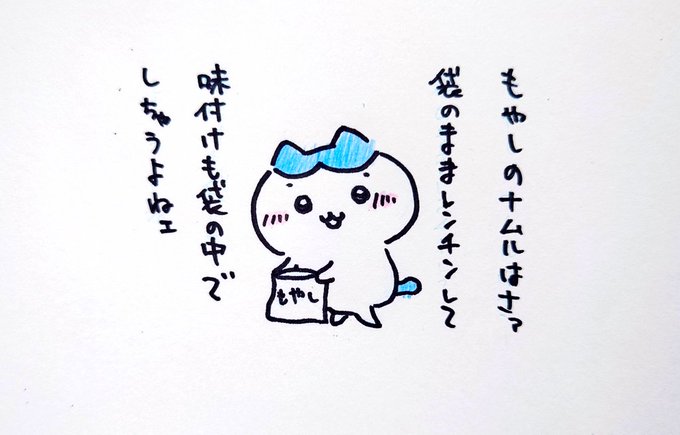 もやしのナムルはさァ
袋のままレンチンして
味付けも袋の中で
しちゃうよねェ
もやし